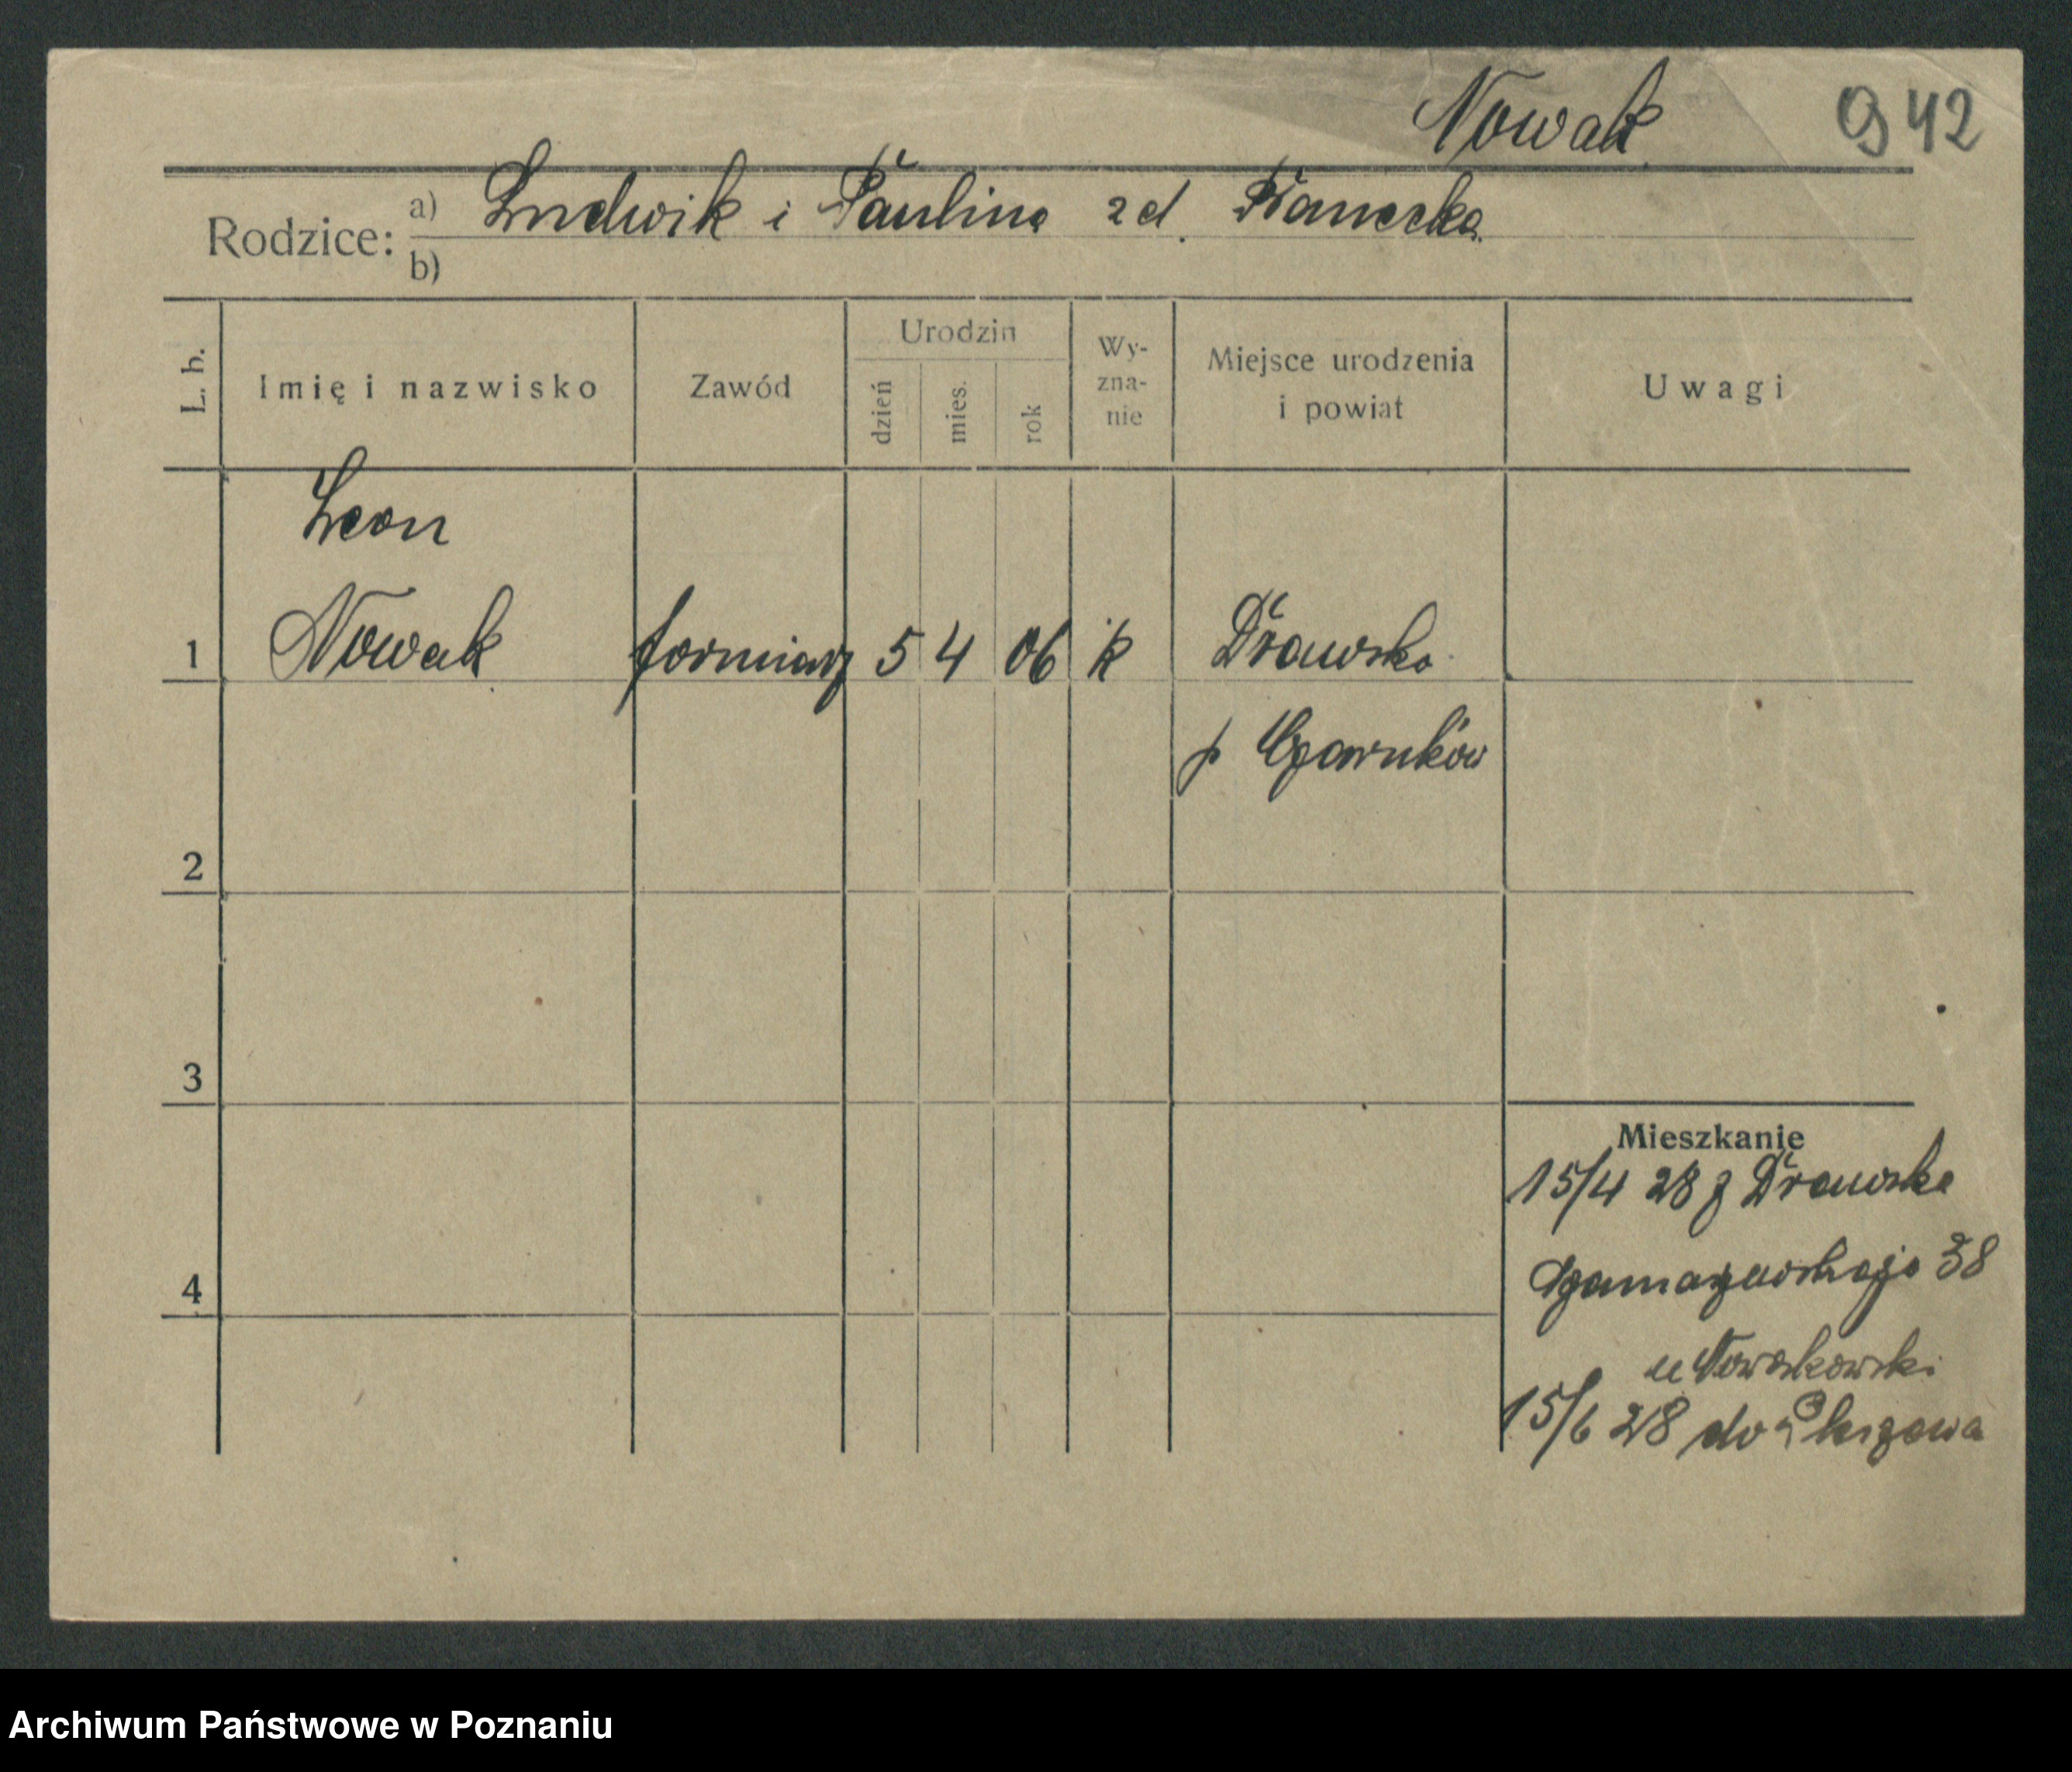 Nowak 942
Rodzice: a) Ludwik i Paulina zd.
b)
L. b. Imię i nazwisko Zawód Urodzin dzień mies. rok Wy-zna-nie Miejsce urodzenia i powiat Uwagi
Leon
1 Nowak formiarz 5 4 06 k Drawsko
p Czarnków
2
3
Mieszkanie
15/4 28 z Drawska
4 38
u Nowakowski
15/6 28 do
Archiwum Państwowe w Poznaniu